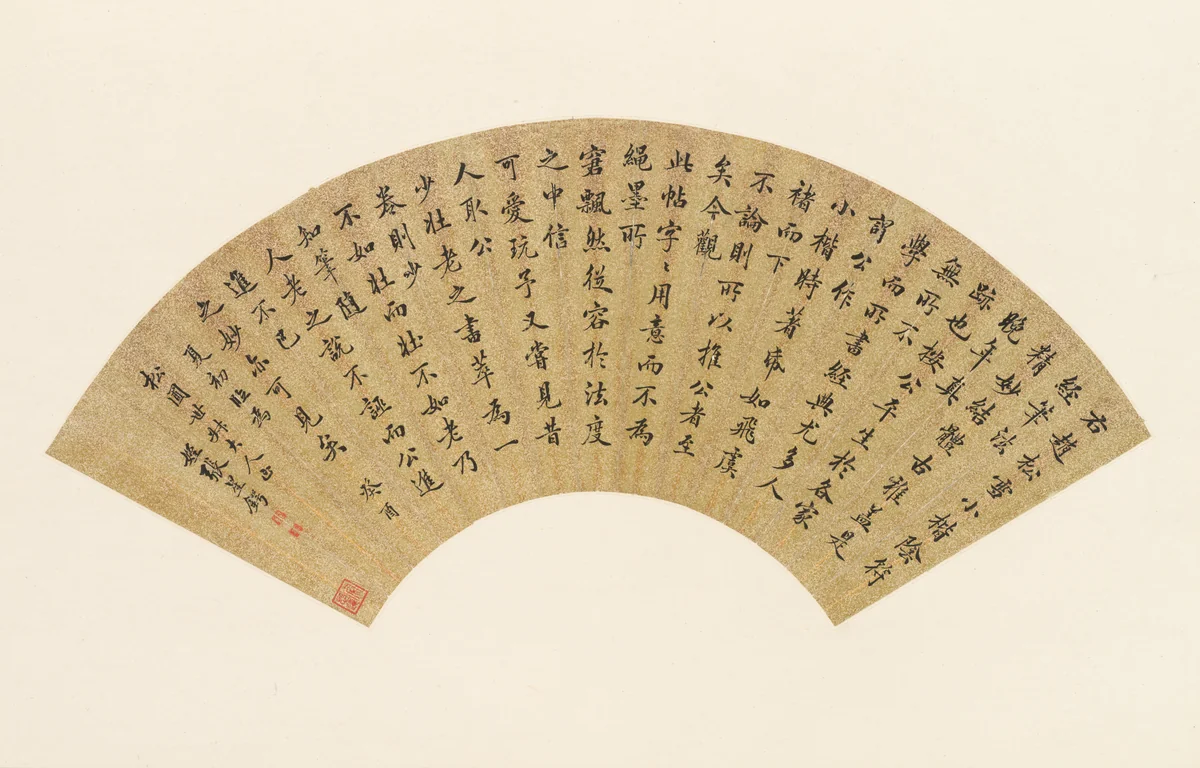 右趙松雪小楷陰符
經筆法
精妙結體古雅蓋是
晚年真
跡也按公平生於各家
無所不
學而所書經典尤多人
謂公作
小楷時著帋如飛虞
褚而下
不論則所以推公者至
矣今觀
此帖字〻用意而不為
繩墨所
窘飄然從容於法度
之中信
可愛玩予又嘗見昔
人取公
少壯老之書萃為一
卷則少
不如壯而壯不如老乃
知筆隨
人老之說不誣而公進
進不已
之妙亦可見矣癸酉
夏初臨為
松圓世叔大人正
姪張呈鍔